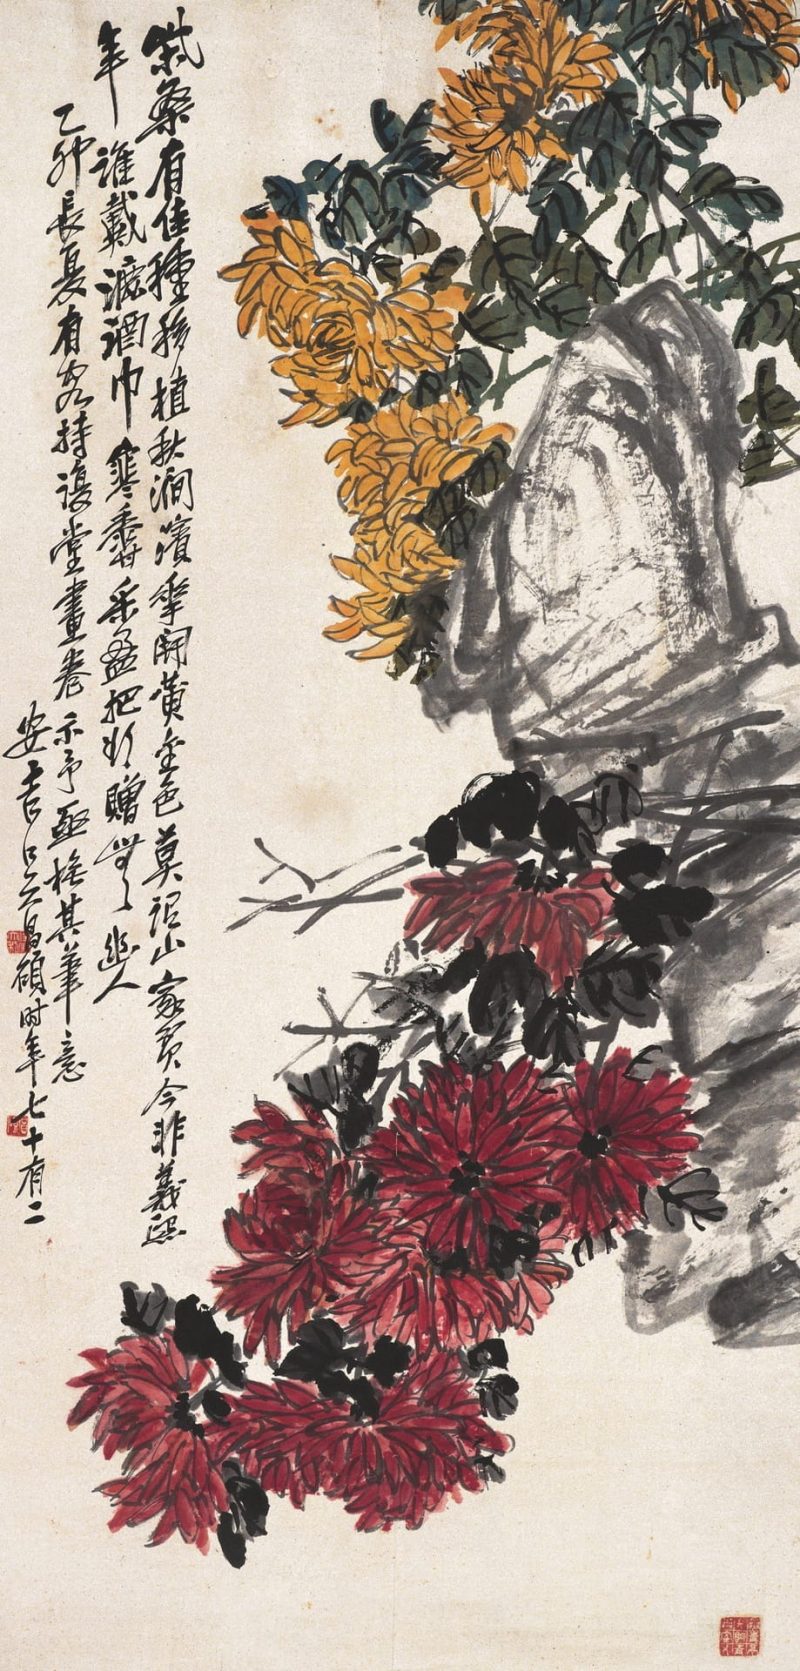 柴桑有佳種移植秋澗濱華開黃金色莫山家貧今非義熙
年誰戴漉酒巾寒香采盈把贈無幽人
乙卯長夏有客持復堂畫卷示予亟橅其筆意
安吉吳昌碩时年七十有二